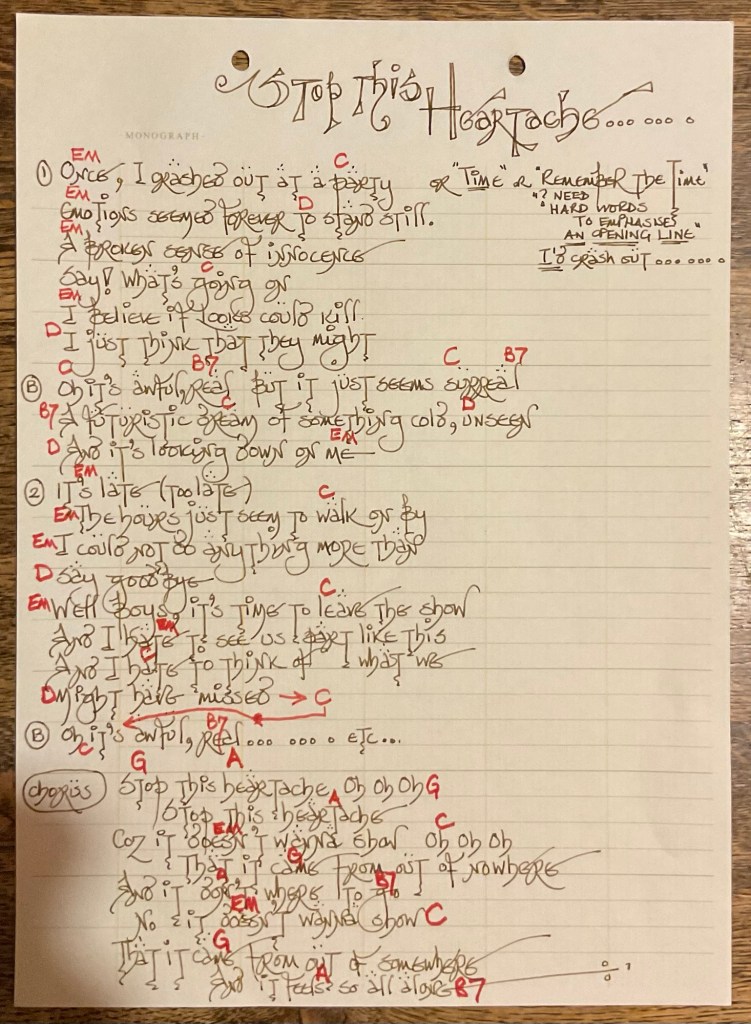 Stop This Heartache.......
MONOGRAPH
Em C
① Once, I crashed out at a party or "Time" or "Remember The Time"
Em D "? NEED
Emotions seemed forever to stand still. "HARD WORDS
TO EMPHASISE
Em AN OPENING LINE"
A broken sense of innocence I'd crash out........
C
Say! What's going on
Em
I believe if looks could kill
D I just think that they might
C B7 C B7
Ⓑ Oh it's awful, real but it just seems surreal
B7 C D
A futuristic dream of something cold, unseen
D Em
And it's looking down on me
Em
② It's late (too late)
C
Em The hours just seem to walk on by
Em I could not do anything more than
D Say goodbye
C
Em Well Boys, it's time to leave the show
Em
And I hate to see us part like this
C
And I hate to think of what we
D Might have missed → C
B7
Ⓑ Oh it's awful, real....... etc...
C
G A
chorus Stop this heartache, Oh Oh Oh G
A
Stop this heartache
Em C
Coz it doesn't wanna show Oh Oh Oh
G
That it came from out of nowhere
A B7
And it don't where to go
Em
No it doesn't wanna show C
G
That it came from out of somewhere
A
And it feels so all alone B7